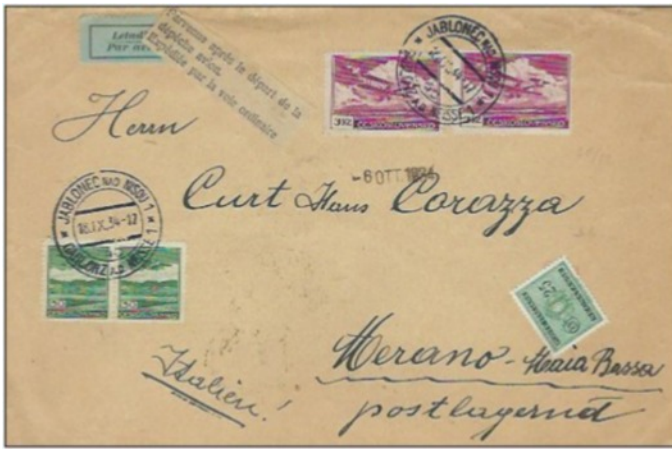 Letadl
Par av
Parvenue après le départ de la
dépêche avion.
Expédiée par la voie ordinaire
JABLONEC NAD NISOU
Herrn
-6 OTT. 1934
Curt Hans Corazza
JABLONEC NAD NISOU 1
18.IX.34-17
GABLONZ A.D. NEISSE 1
25
Merano - Maia Bassa
Italien!
postlagernd